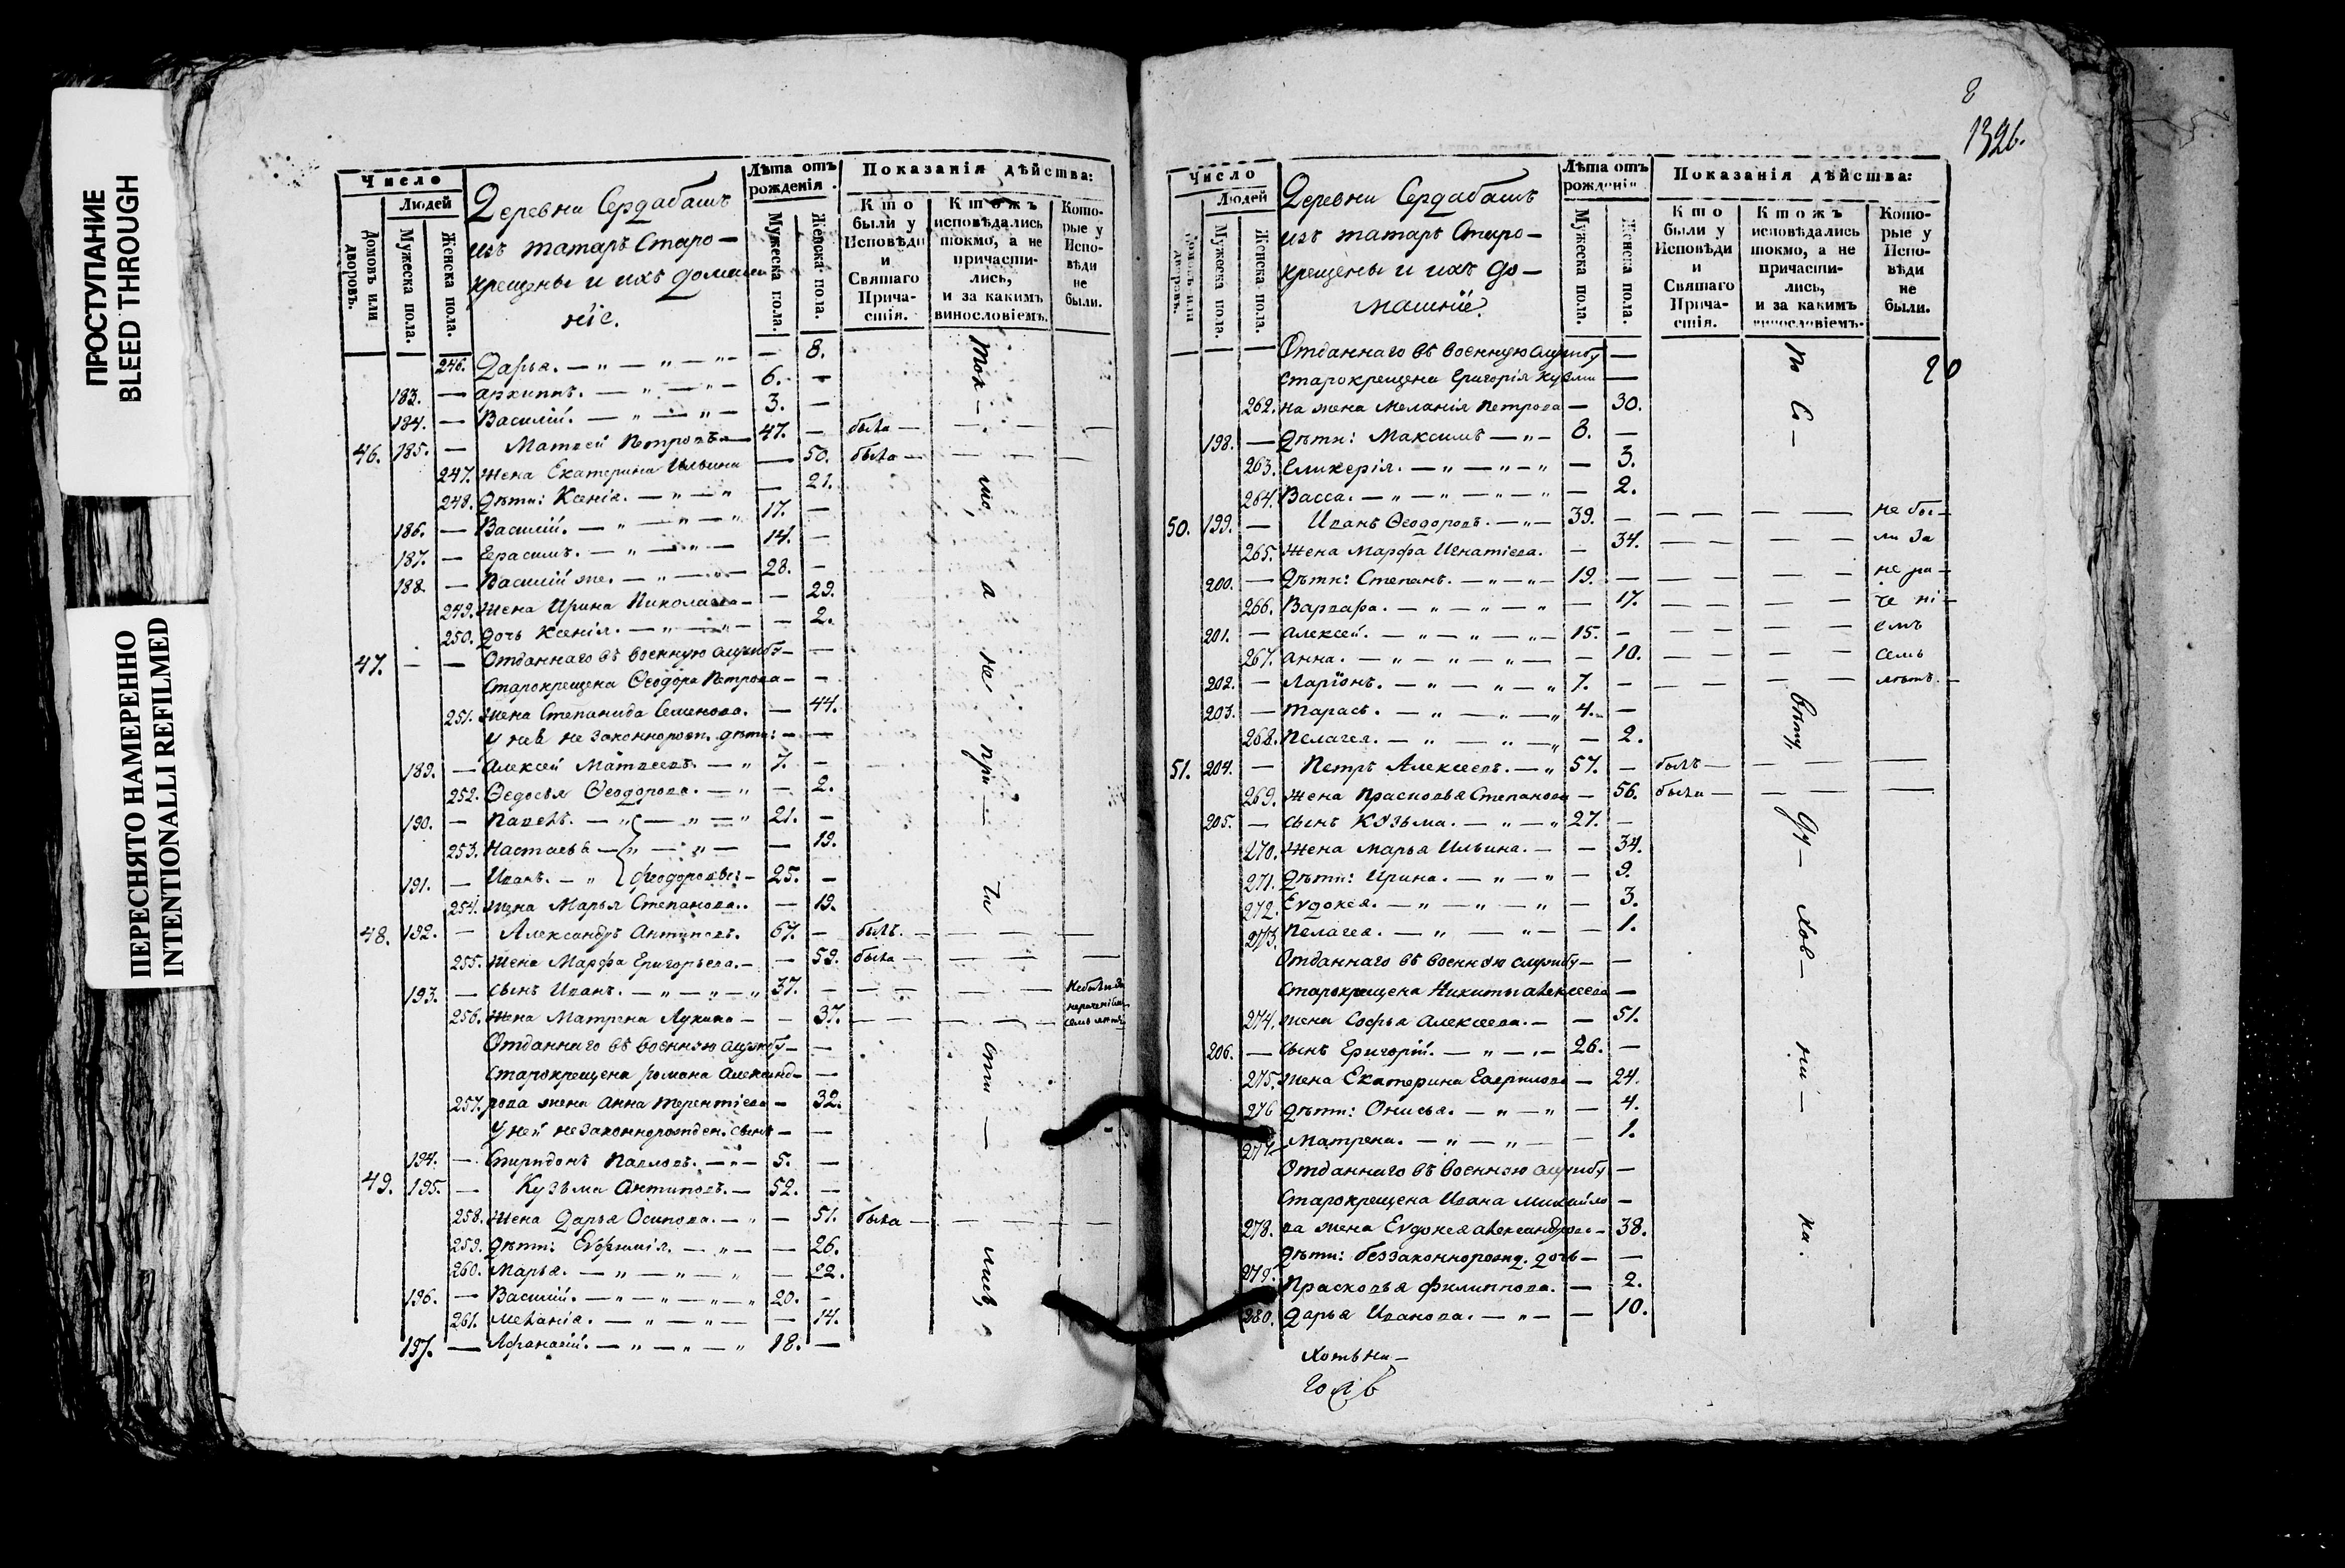 ПРОСТУПАНИЕ
BLEED THROUGH
ПЕРЕСНЯТО НАМЕРЕННО
INTENTIONALLI REFILMED
Число
Людей
Домовъ или дворовъ.
Мужеска пола.
Женска пола.
Деревни Сердабашъ
изъ татаръ старо-
крещены и ихъ домаш
ніе.
Лѣта отъ рожденія.
Мужеска пола.
Женска пола.
Показанія дѣйства:
Кто были у Исповѣди и Святаго Причастія.
Ктожъ исповѣдались токмо, а не причастились, и за какимъ винословіемъ.
Которые у Исповѣди не были.
246. Дарья. — 8.
183. — Архиппъ. 6. —
184. — Василій. 3. —
46. 185. — Матвей Петровъ — 47. — былъ —
247. Жена Екатерина Ильина — 50. была —
248. Дѣти: Ксенія. — 21.
186. — Василій. 17. —
187. — Герасимъ. 14. —
188. — Василій же. 28. —
249. Жена Ирина Николаева — 29.
250. Дочь Ксенія. — 2.
47. — — Отданнаго въ военную службу —
Старокрещена Ѳеодора Петрова —
251. Жена Степанида Семенова. — 44.
У нея не законнорожд. дѣти: —
189. — Алексей Матвеевъ. 7. —
252. Ѳедосья Ѳеодорова. — 2.
190. — Павелъ. 21. —
253. Настасья — 19.
191. — Иванъ. Ѳеодоровы: 25. —
254. Жена Марья Степанова. — 19.
48. 192. — Александръ Антиповъ. 67. — былъ. —
255. Жена Марфа Григорьева. — 59. была —
193. — Сынъ Иванъ. 37. —
256. Жена Матрена Лукина — 37.
Отданнаго въ военною службу —
Старокрещена Романа Александ —
257. рова жена Анна Терентіева — 32.
У ней незаконнорожден. сынъ —
194. — Спиридонъ Павловъ. 5. —
49. 195. — Кузьма Антиповъ. 52. —
258. Жена Дарья Осипова. — 51. была —
259. Дѣти: Евфимія. — 26.
260. Марья. — 22.
196. — Василій. 20. —
261. Меланія. — 14.
197. — Афанасій. 18. —
ток-
мо,
а
не
при-
ча
сти-
лись,
8
1326.
Число
Людей
Мужеска пола.
Женска пола.
Деревни Сердабашъ
изъ татаръ старо-
крещены и ихъ до-
машніе.
Лѣта отъ рожденія
Мужеска пола.
Женска пола.
Показанія дѣйства:
Кто были у Исповѣди и Святаго Причастія.
Ктожъ исповѣдались токмо, а не причастились, и за какимъ винословіемъ.
Которые у Исповѣди не были.
Отданнаго въ военную службу —
Старокрещена Григорія Кузми —
262. на жена Меланія Петрова — 30.
198. — Дѣти: Максимъ 8. —
263. Гликерія. — 3.
264. Васса. — 2.
50. 199. — Иванъ Ѳеодоровъ. 39. — не бы-
265. Жена Марфа Игнатіева. — 34. ли за
200. — Дѣти: Степанъ. 19. — не ра-
266. Варвара. — 17. че ні-
201. — Алексей. 15. — емъ
267. Анна. — 10. семь
202. — Ларіонъ. 7. — лѣтъ.
203. — Тарасъ. 4. —
268. Пелагея. — 2.
51. 204. — Петръ Алексеевъ. 57. — былъ —
269. Жена Прасковья Степанова — 56. была —
205. — Сынъ Козьма. 27. —
270. Жена Марья Ильина. — 34.
271. Дѣти: Ирина. — 9.
272. Евдокея. — 3.
273. Пелагея. — 1.
Отданнаго въ военною службу —
Старокрещена Никиты Алексеева —
274. Жена Софья Алексеева. — 51.
206. — Сынъ Григорій. 26. —
275. Жена Екатерина Гаврилова — 24.
276 Дѣти: Онисья. — 4.
277. Матрена. — 1.
Отданнаго въ военною службу —
Старокрещена Ивана Михайло —
278. ва жена Евдокея Александрова — 38.
Дѣти: беззаконнорожд. дочь —
279. Прасковья Филиппова. — 2.
280. Дарья Иванова. — 10.
по
Со-
вѣту
Ду-
хов-
ни-
ка.